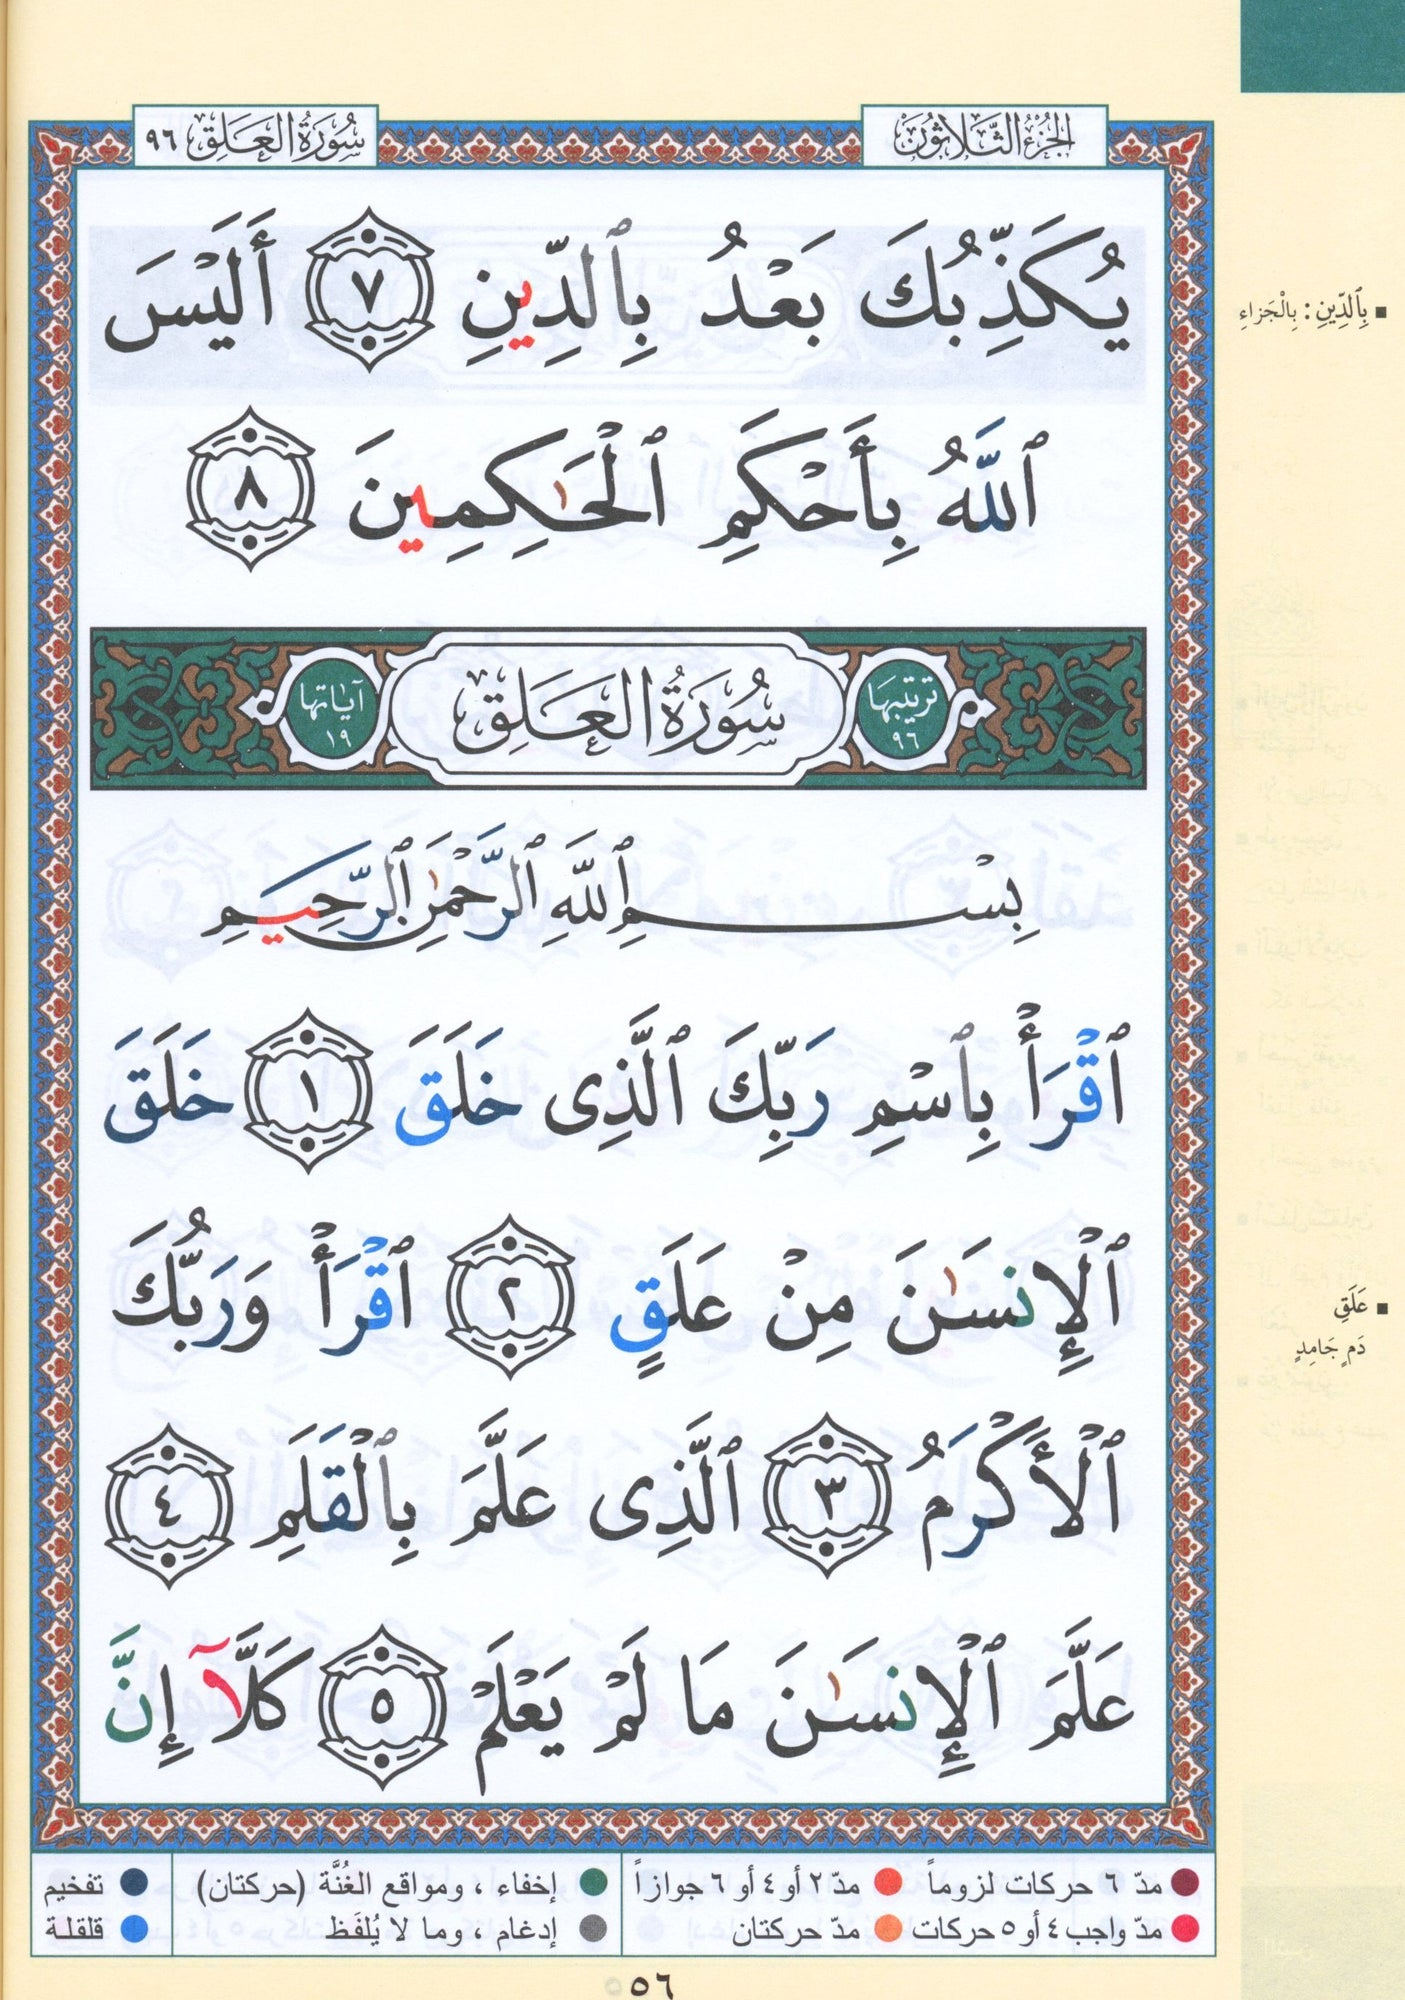 الجزء الثلاثون
سورة العلق ٩٦
يُكَذِّبُكَ بَعْدُ بِٱلدِّينِ ٧ أَلَيْسَ
ٱللَّهُ بِأَحْكَمِ ٱلْحَٰكِمِينَ ٨
ترتيبها ٩٦ سُورَةُ العَلَقِ آياتها ١٩
بِسْمِ ٱللَّهِ ٱلرَّحْمَٰنِ ٱلرَّحِيمِ
ٱقْرَأْ بِٱسْمِ رَبِّكَ ٱلَّذِى خَلَقَ ١ خَلَقَ
ٱلْإِنسَٰنَ مِنْ عَلَقٍ ٢ ٱقْرَأْ وَرَبُّكَ
ٱلْأَكْرَمُ ٣ ٱلَّذِى عَلَّمَ بِٱلْقَلَمِ ٤
عَلَّمَ ٱلْإِنسَٰنَ مَا لَمْ يَعْلَمْ ٥ كَلَّآ إِنَّ
بِٱلدِّينِ: بِالْجَزاءِ
عَلَقٍ
دَمٍ جَامِدٍ
مدّ ٦ حركات لزوماً مدّ ٢ أو ٤ أو ٦ جوازاً إخفاء ، ومواقع الغُنَّة (حركتان) تفخيم
مدّ واجب ٤ أو ٥ حركات مدّ حركتان إدغام ، وما لا يُلفَظ قلقلة
٥٦